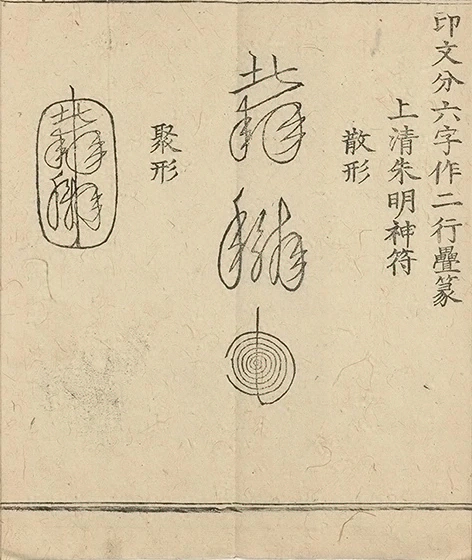 印文分六字作二行疊篆
上清朱明神符
散形
聚形